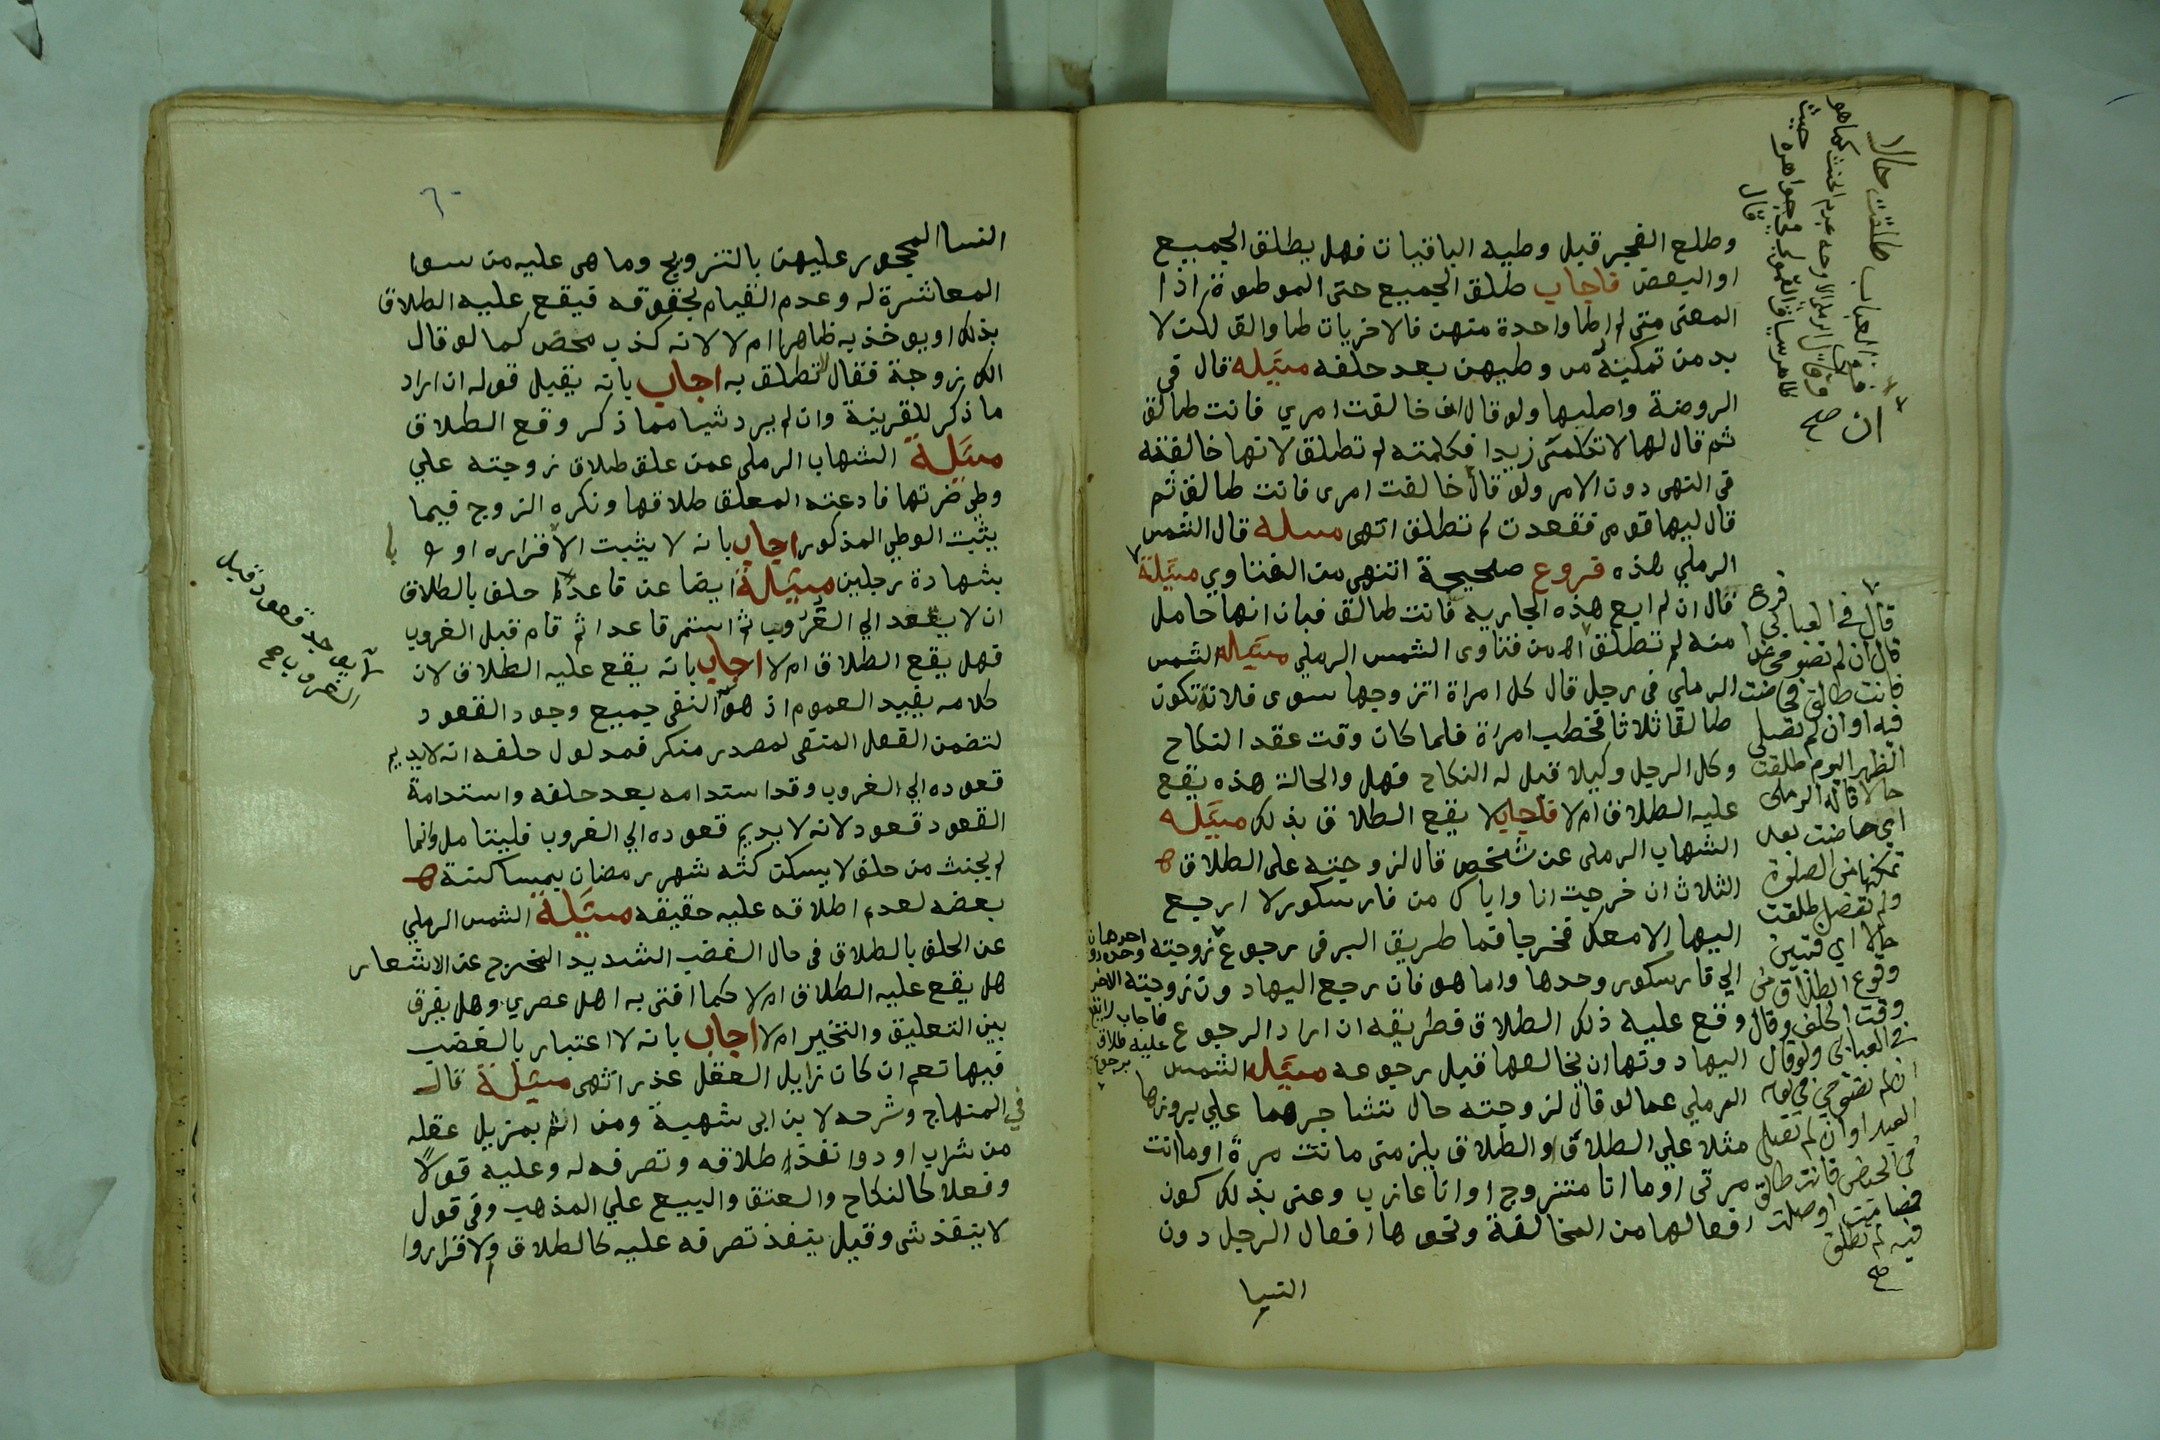 وطلع الفجر قبل وطيه الباقيات فهل يطلق الجميع
او البعض فاجاب طلق الجميع حتى الموطوة اذا
المعنى متى لم اطا واحدة منهن فالاخريات طوالق لكت لا
بد من تمكينه من وطيهن بعد حلفه مسئله قال في
الروضة واصلها ولو قال ان خالفت امري فانت طالق
ثم قال لها لا تكلمي زيدا فكلمته لم تطلق لانها خالفته
في النهى دون الامر ولو قال خالفت امرى فانت طالق ثم
قال لها قومى فقعدت لم تطلق انتهى مسله قال الشمس
الرملي هذه فروع صحيحة انتهى من الفتاوي مسئلة
قال ان لم ابع هذه الجارية فانت طالق فبان انها حامل
منه لم تطلق اه من فتاوى الشمس الرملي مسئله الشمس
الرملي في رجل قال كل امراة اتزوجها سوى فلانة تكون
طالقا ثلاثا فخطب امراة فلما كان وقت عقد النكاح
وكل الرجل وكيلا قبل له النكاح فهل والحالة هذه يقع
عليه الطلاق ام لا فاجاب لا يقع الطلاق بذلك مسئله
الشهاب الرملى عن شخص قال لزوجته على الطلاق
الثلاث ان خرجت انا واياك من فارسكور لا ارجع
اليها الا معك فخرجا فما طريق البر في رجوع زوجته
الي فارسكور وحدها واما هو فان رجع اليها دون زوجته
وقع عليه ذلك الطلاق فطريقه ان اراد الرجوع
اليها دونها ان يخالعها قبل رجوعه مسئله الشمس
الرملي عما لو قال لزوجته حال تشاجرهما علي يروزها
مثلا علي الطلاق او الطلاق يلزمنى ما نت مرة او ما انت
مرتى او ما انا متزوج او انا عازب وعنى بذلك كون
افعالها من المخالفة ونحوها افعال الرجل دون
النسا
ان صح
فرع
قال في العباب
قال ان لم تصومى غدا
فانت طالق فحاضت
فيه او ان لم تصلى
الظهر اليوم طلقت
حالا قاله الرملى
اي حاضت بعد
تمكنها من الصلوة
ولم تصل طلقت
حالا اي فتبين
وقوع الطلاق من
وقت الحلف وقال
في العباب ولو قال
ان لم تصومى في يوم
العيد او ان لم تصلى
في الحيض فانت طالق
فصامت او صلت
فيه لم تطلق
صح
النسا المحجور عليهن بالتزويج وما هى عليه من سوا
المعاشرة له وعدم القيام بحقوقه فيقع عليه الطلاق
بذلك او يوخذ به ظاهرا ام لا لانه كذب محض كما لو قال
الك زوجة فقال لا تطلق به اجاب بانه يقبل قوله ان اراد
ما ذكر للقرينة وان لم يرد شيا مما ذكر وقع الطلاق
مسئلة الشهاب الرملى عمن علق طلاق زوجته علي
وطي ضرتها فادعته المعلق طلاقها ونكره الزوج فبما
يثبت الوطي المذكور اجاب بانه لا يثبت الا باقراره او
بشهادة رجلين مسئلة ايضا عن قاعد حلف بالطلاق
ان لا يقعد الي الغروب ثم استمر قاعدا ثم قام قبل الغروب
فهل يقع الطلاق ام لا اجاب بانه يقع عليه الطلاق لان
كلامه يفيد العموم اذ هو النفى جميع وجود القعود
لتضمن الفعل المنفى لمصدر منكر فمدلول حلفه انه لا يديم
قعوده الي الغروب وقد استدامه بعد حلفه واستدامة
القعود قعود لانه لا يديم قعوده الي الغروب فليتامل وانما
لم يحنث من حلف لا يسكت كثه شهر رمضان بمساكنة
بعضه لعدم اطلاقه عليه حقيقه مسئلة الشمس الرملي
عن الحلف بالطلاق في حال الغضب الشديد المخرج عن الاشعار
هل يقع عليه الطلاق ام لا كما افتى به اهل عصري وهل يفرق
بين التعليق والتخير ام لا اجاب بانه لا اعتبار بالغضب
فيها نعم ان كان زايل العقل عذر انتهى مسئلة قال
في المنهاج وشرحه لابن ابى شهبة ومن اثم بمزيل عقله
من شراب او دوا نفذ طلاقه وتصرفه له وعليه قولا
وفعلا كالنكاح والعتق والبيع علي المذهب وفى قول
لا ينفذ شى وقيل ينفذ تصرفه عليه كالطلاق والاقرار وا